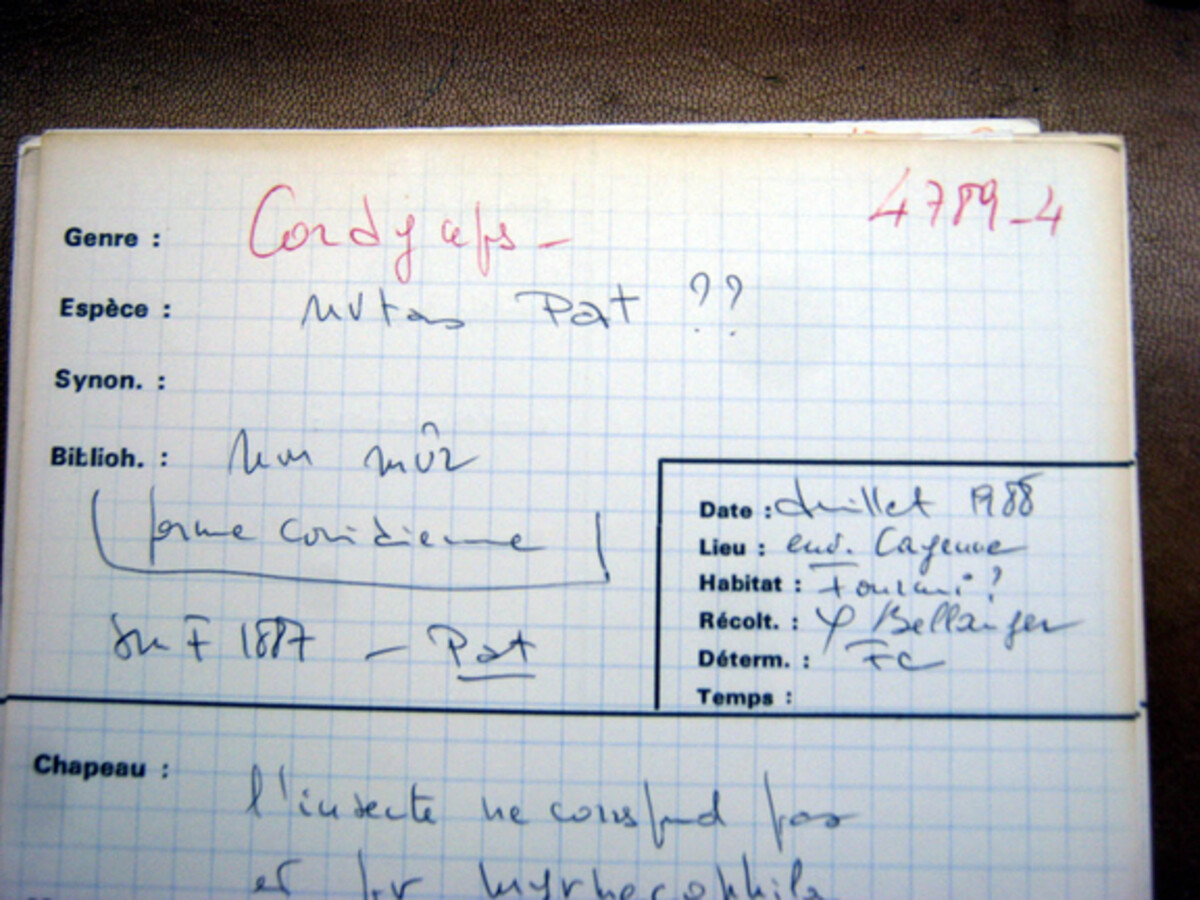 4789-4
Genre : Cordyceps -
Espèce : nutans Pat ??
Synon. :
Biblioh. : Non mûr
forme conidienne
SMF 1887 - Pat
Date : Juillet 1988
Lieu : env. Cayenne
Habitat : Fourmi ?
Récolt. : Y Bellanger
Déterm. : FC
Temps :
Chapeau : l'insecte ne correspond pas
et myrmecophila